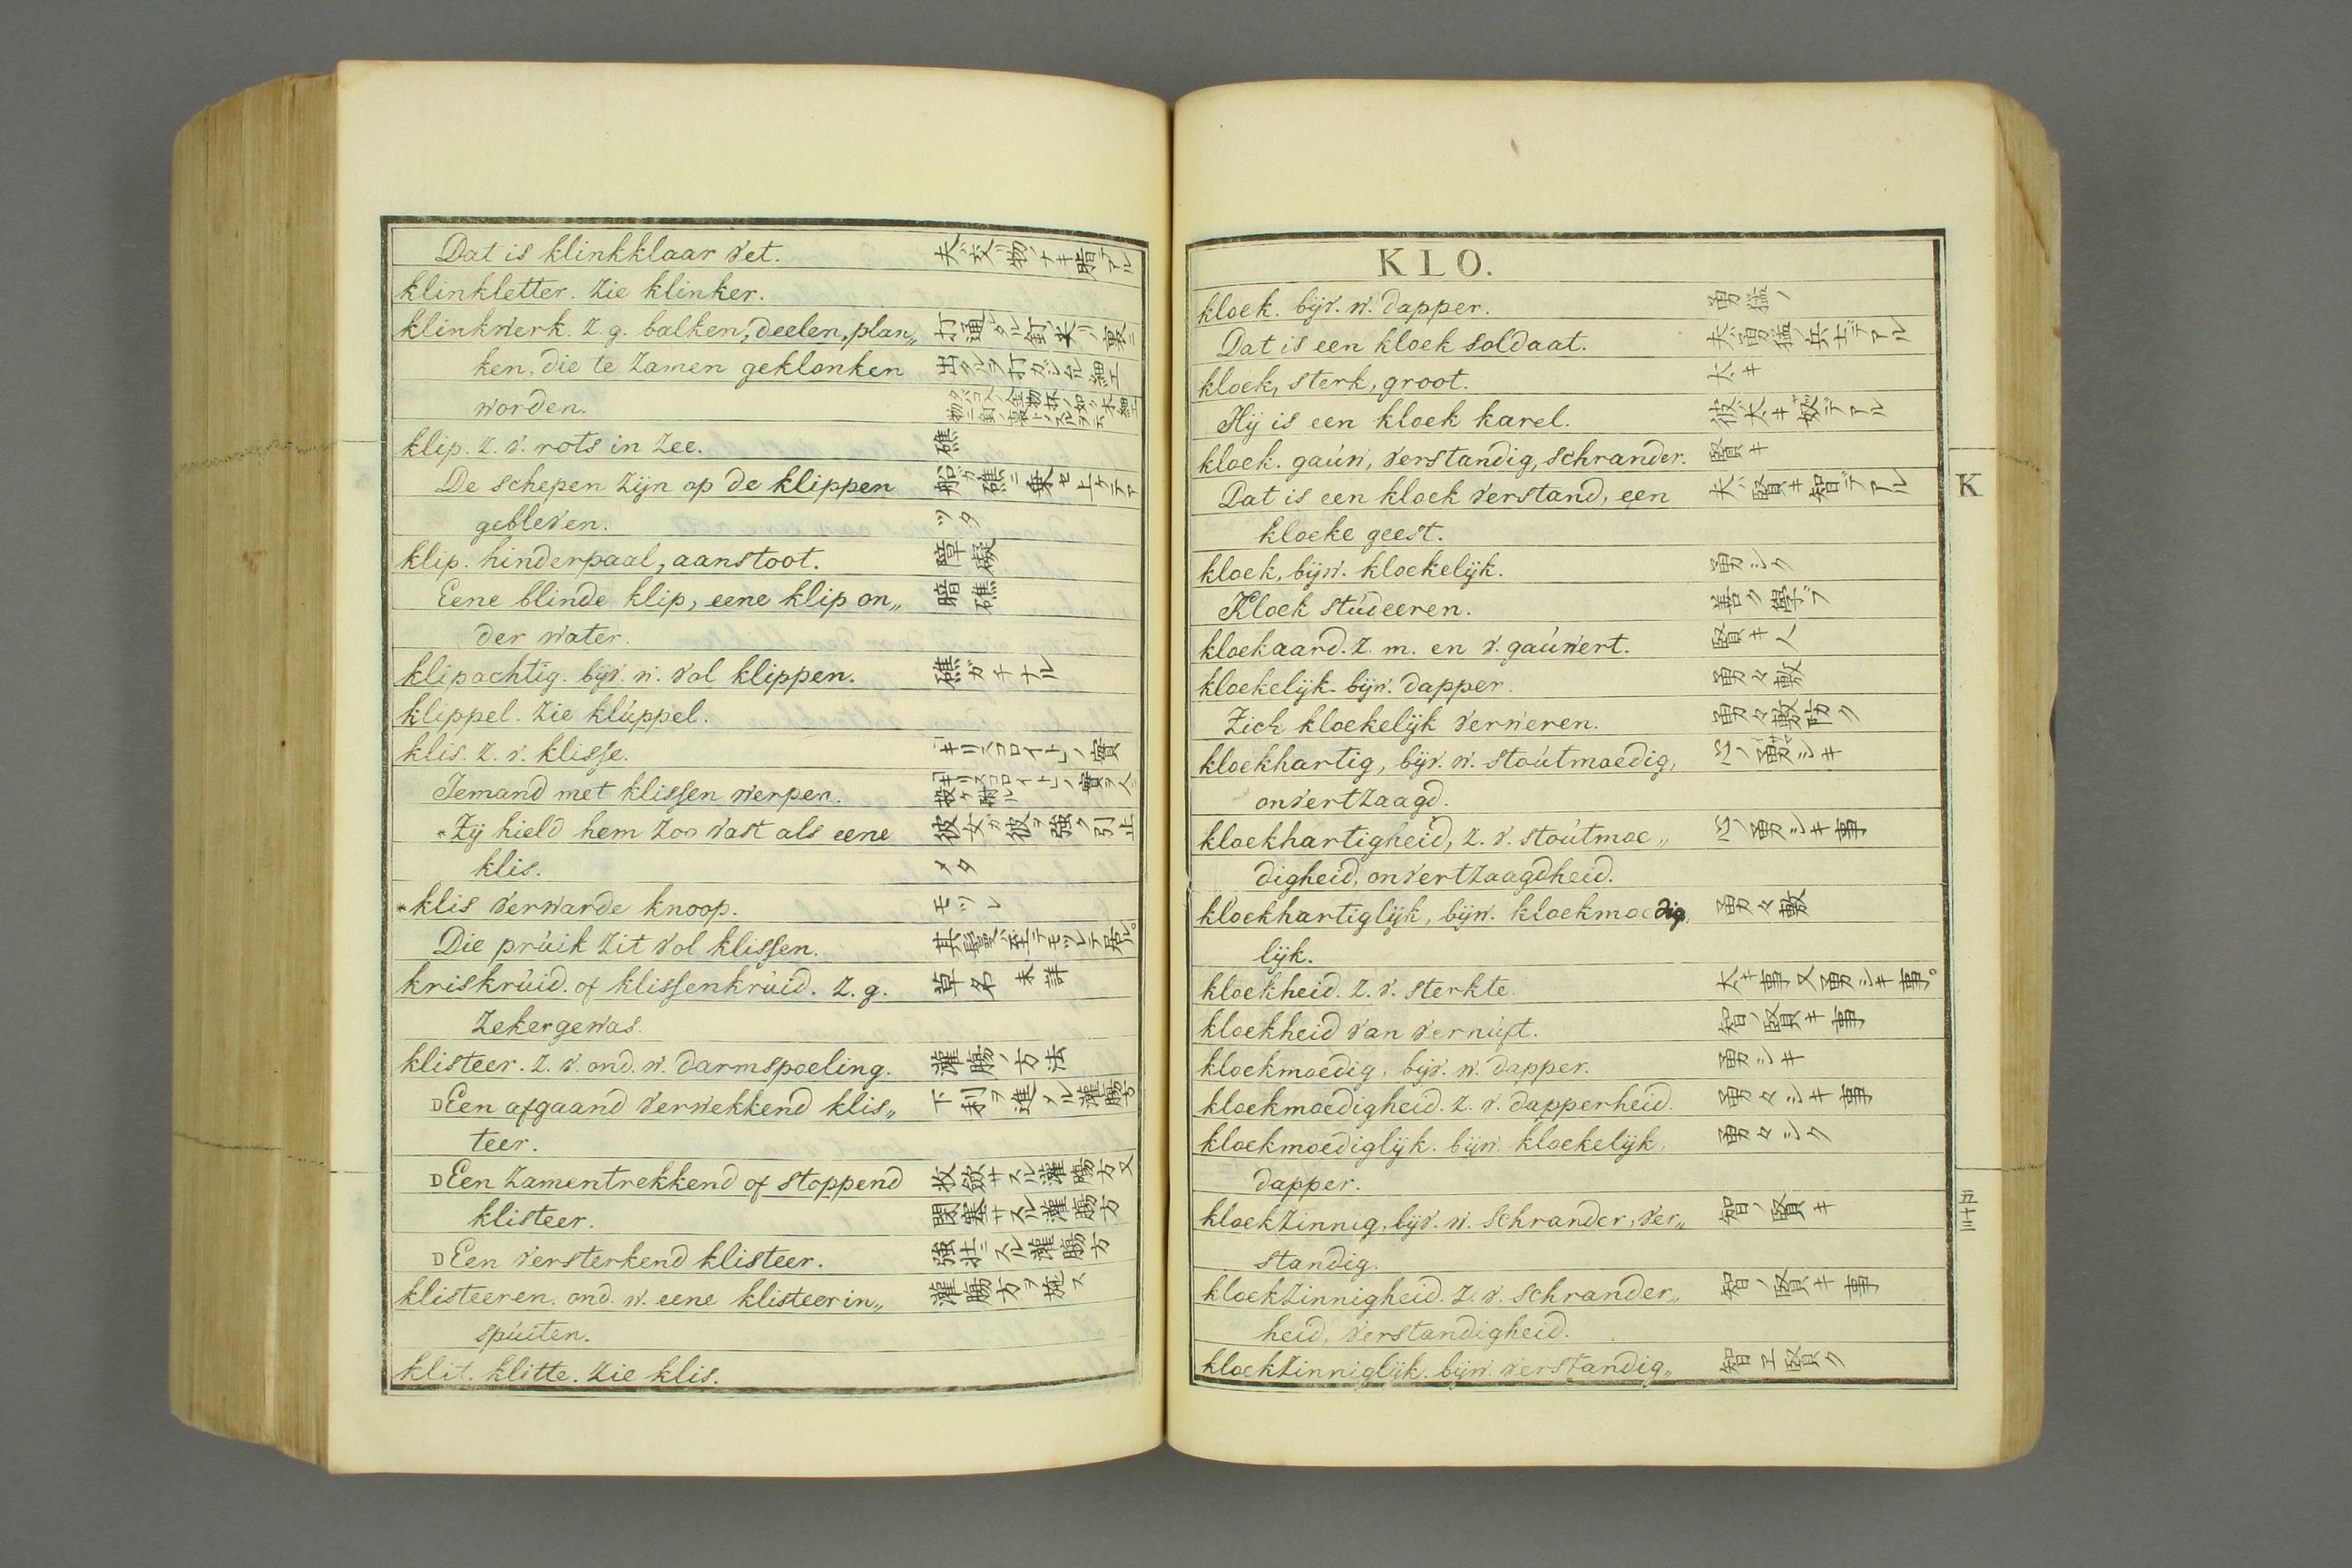 Dat is klinkklaar vet. 夫ハ交物ナキ脂デアル
klinkletter. Zie klinker.
klinkwerk. z. g. balken, deelen, plan„ 打通シタル釘ノ裏ニ
ken, die te zamen geklonken
worden.
klip. z. v. rots in zee. 礁
De schepen zijn op de klippen 船ガ礁ニ乗セ上ケテア
gebleven. ツタ
klip. hinderpaal, aanstoot. 障礙
Eene blinde klip, eene klip on„ 暗礁
der water.
klipachtig. bijv. w. vol klippen. 礁ガチナル
klippel. Zie klúppel.
klis. z. v. klisse. キリスコロイトヒノ實
Iemand met klissen werpen. キリスコロイトヒノ實ヲ人ニ投ケ附ル
*Zij hield hem zoo vast als eene 彼女ガ彼ヲ強ク引止
klis. メタ
*klis verwarde knoop. モツレ
Die prúik zit vol klissen. 其鬘ハ至テモツレテ居ル。
kriskrúid. of klissenkrúid. z. g. 草名 未詳
zeker gewas.
klisteer. z. v. ond. w. darmspoeling. 灌膓ノ方法
DEen afgaand verwekkend klis„ 下利ヲ進メル灌膓方
teer.
DEen zamentrekkend of stoppend 收斂サスル灌膓方又
klisteer. 閉塞サスル灌膓方
DEen versterkend klisteer. 強壮ニスル灌膓方
klisteeren. ond. w. eene klisteer in„ 灌膓方ヲ施ス
spúiten.
klit. klitte. Zie klis.
KLO.
kloek. bijv. w. dapper. 勇猛ノ
Dat is een kloek soldaat. 夫ハ勇猛ノ兵士デアル
kloek, sterk, groot. 大キ
Hij is een kloek karel. 彼ハ大キ奴デアル
kloek. gaúw, verstandig, schrander. 賢キ
Dat is een kloek verstand, een 夫ハ賢キ智デアル
kloeke geest.
kloek, bijw. kloekelijk. 勇シク
Kloek stúdeeren. 善ク學ブ
kloekaard. z. m. en v. gaúwert. 賢キ人
kloekelijk. bijw. dapper. 勇々敷
Zich kloekelijk verweren. 勇々敷防ク
kloekhartig, bijv. w. stoútmoedig, 心ノ勇シキ
onvertzaagd.
kloekhartigheid, z. v. stoútmoe„ 心ノ勇シキ事
digheid, onvertzaagdheid.
kloekhartiglijk, bijw. kloekmoedig„ 勇々敷
lijk.
kloekheid. z. v. sterkte. 大キ事又勇シキ事。
kloekheid van vernúft. 智ノ賢キ事
kloekmoedig, bijv. w. dapper. 勇シキ
kloekmoedigheid. z. v. dapperheid. 勇々シキ事
kloekmoediglijk. bijw. kloekelijk, 勇々シク
dapper.
kloekzinnig, bijv. w. schrander, ver„ 智ノ賢キ
standig.
kloekzinnigheid. z. v. schrander„ 智ノ賢キ事
heid, verstandigheid.
kloekzinniglijk. bijw. verstandig„ 智ヱ賢ク
K
五十三